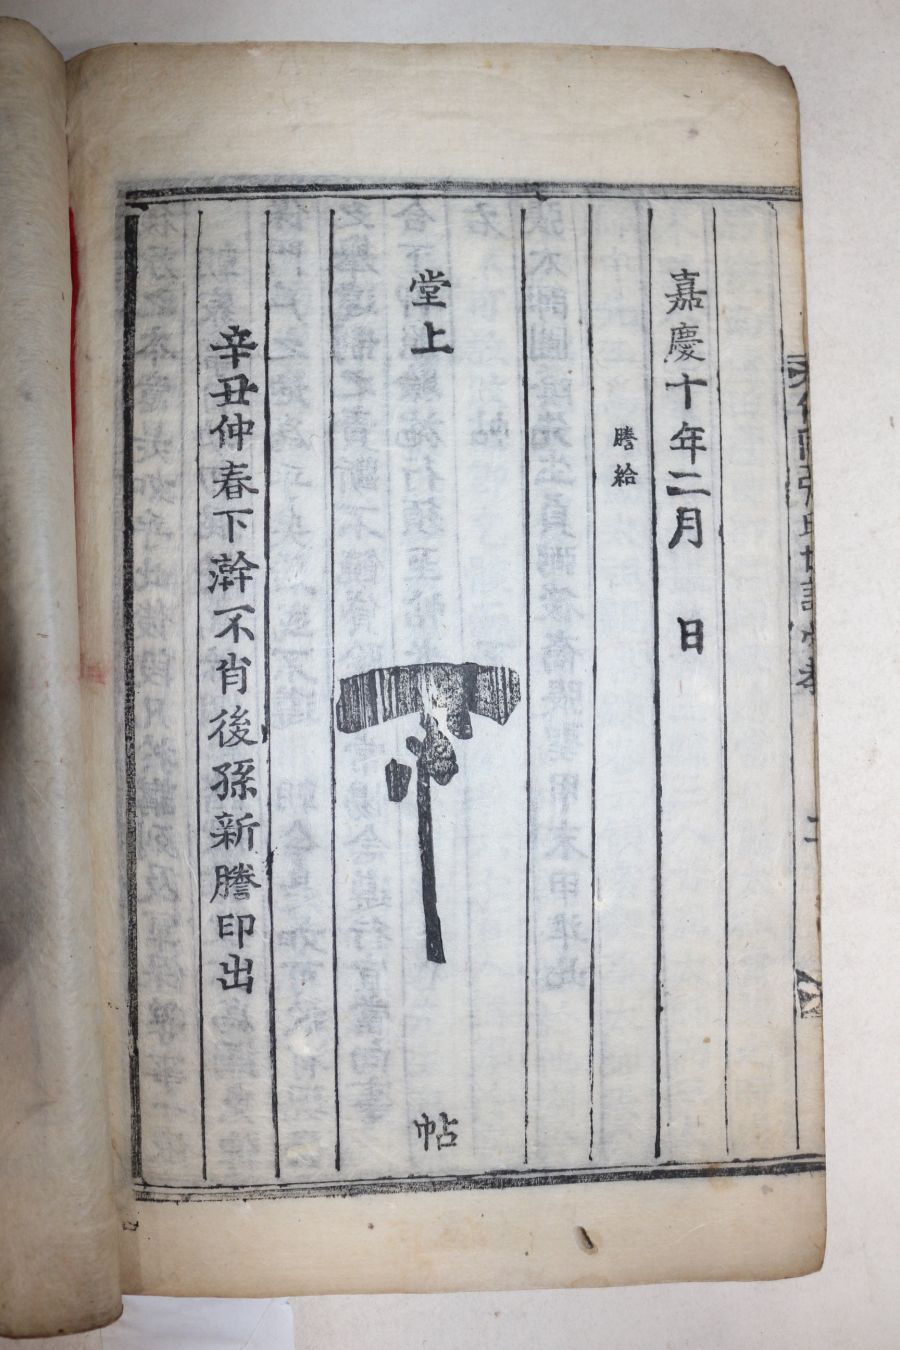 嘉慶十年二月 日
謄給
堂上 帖
辛丑仲春下澣不肖後孫新謄印出
二